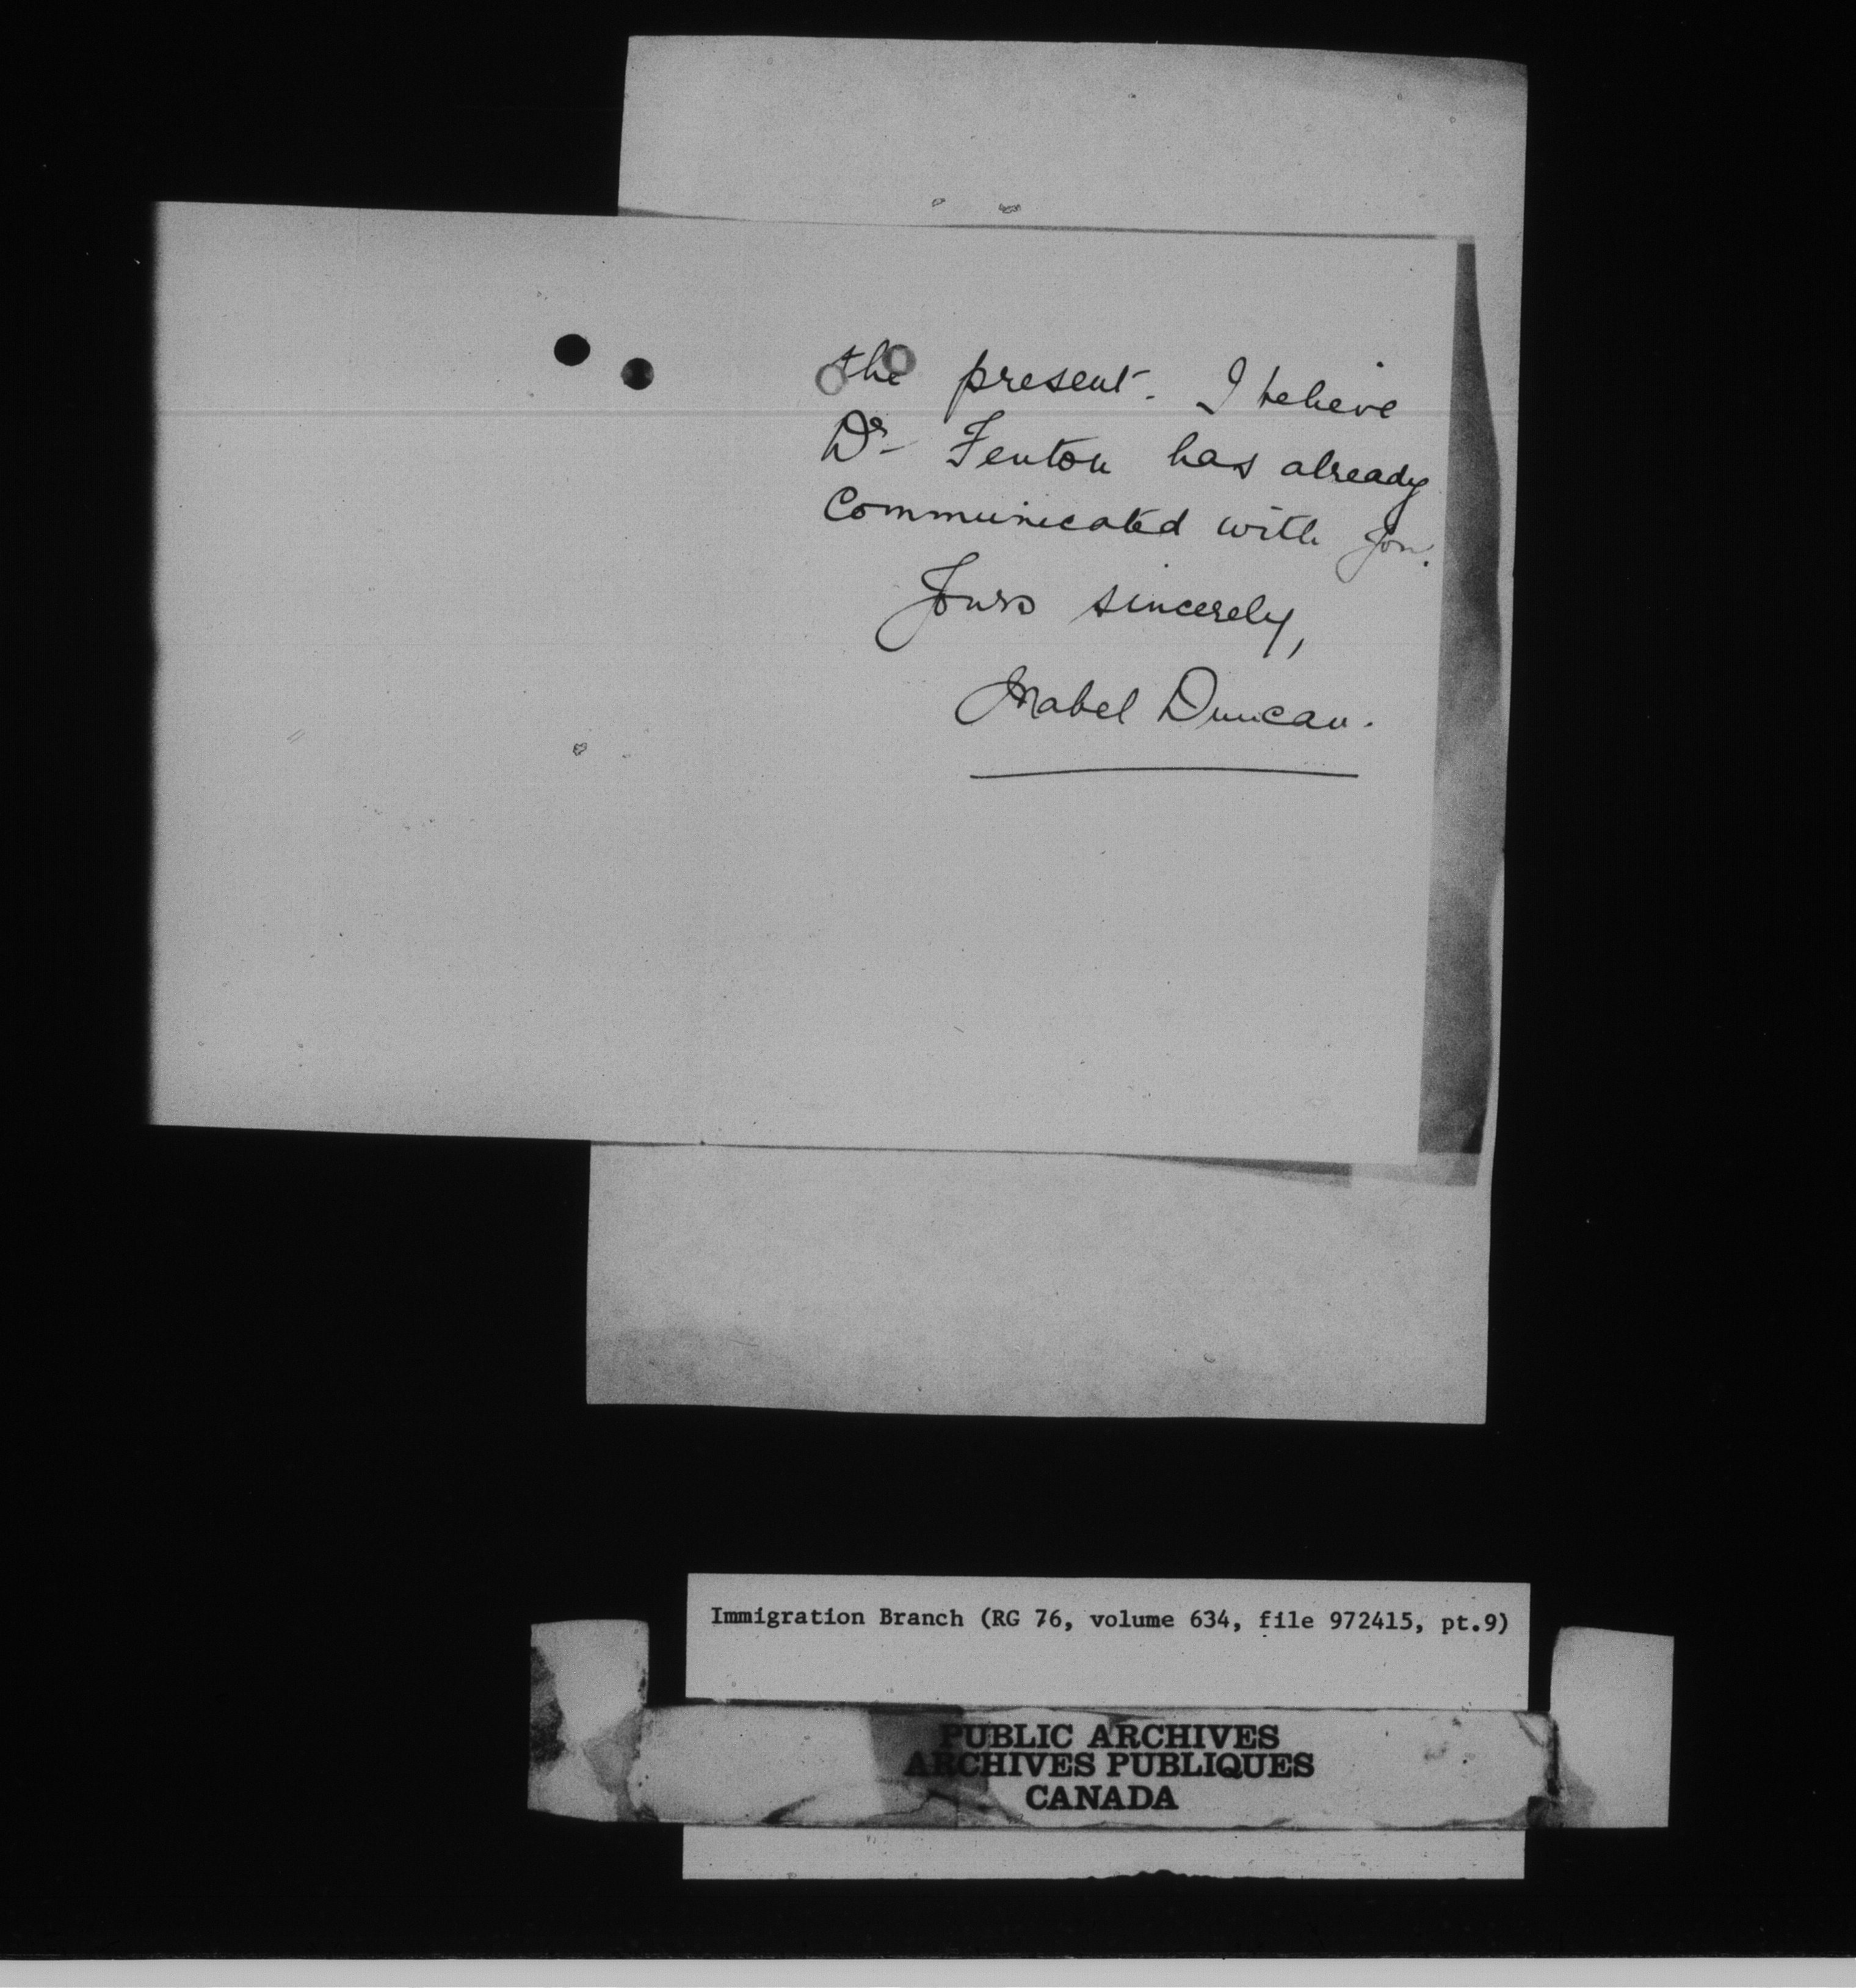 the present. I believe
Dr Fenton has already
communicated with you.
Yours sincerely,
Mabel Duncan.
Immigration Branch (RG 76, volume 634, file 972415, pt.9)
PUBLIC ARCHIVES
ARCHIVES PUBLIQUES
CANADA